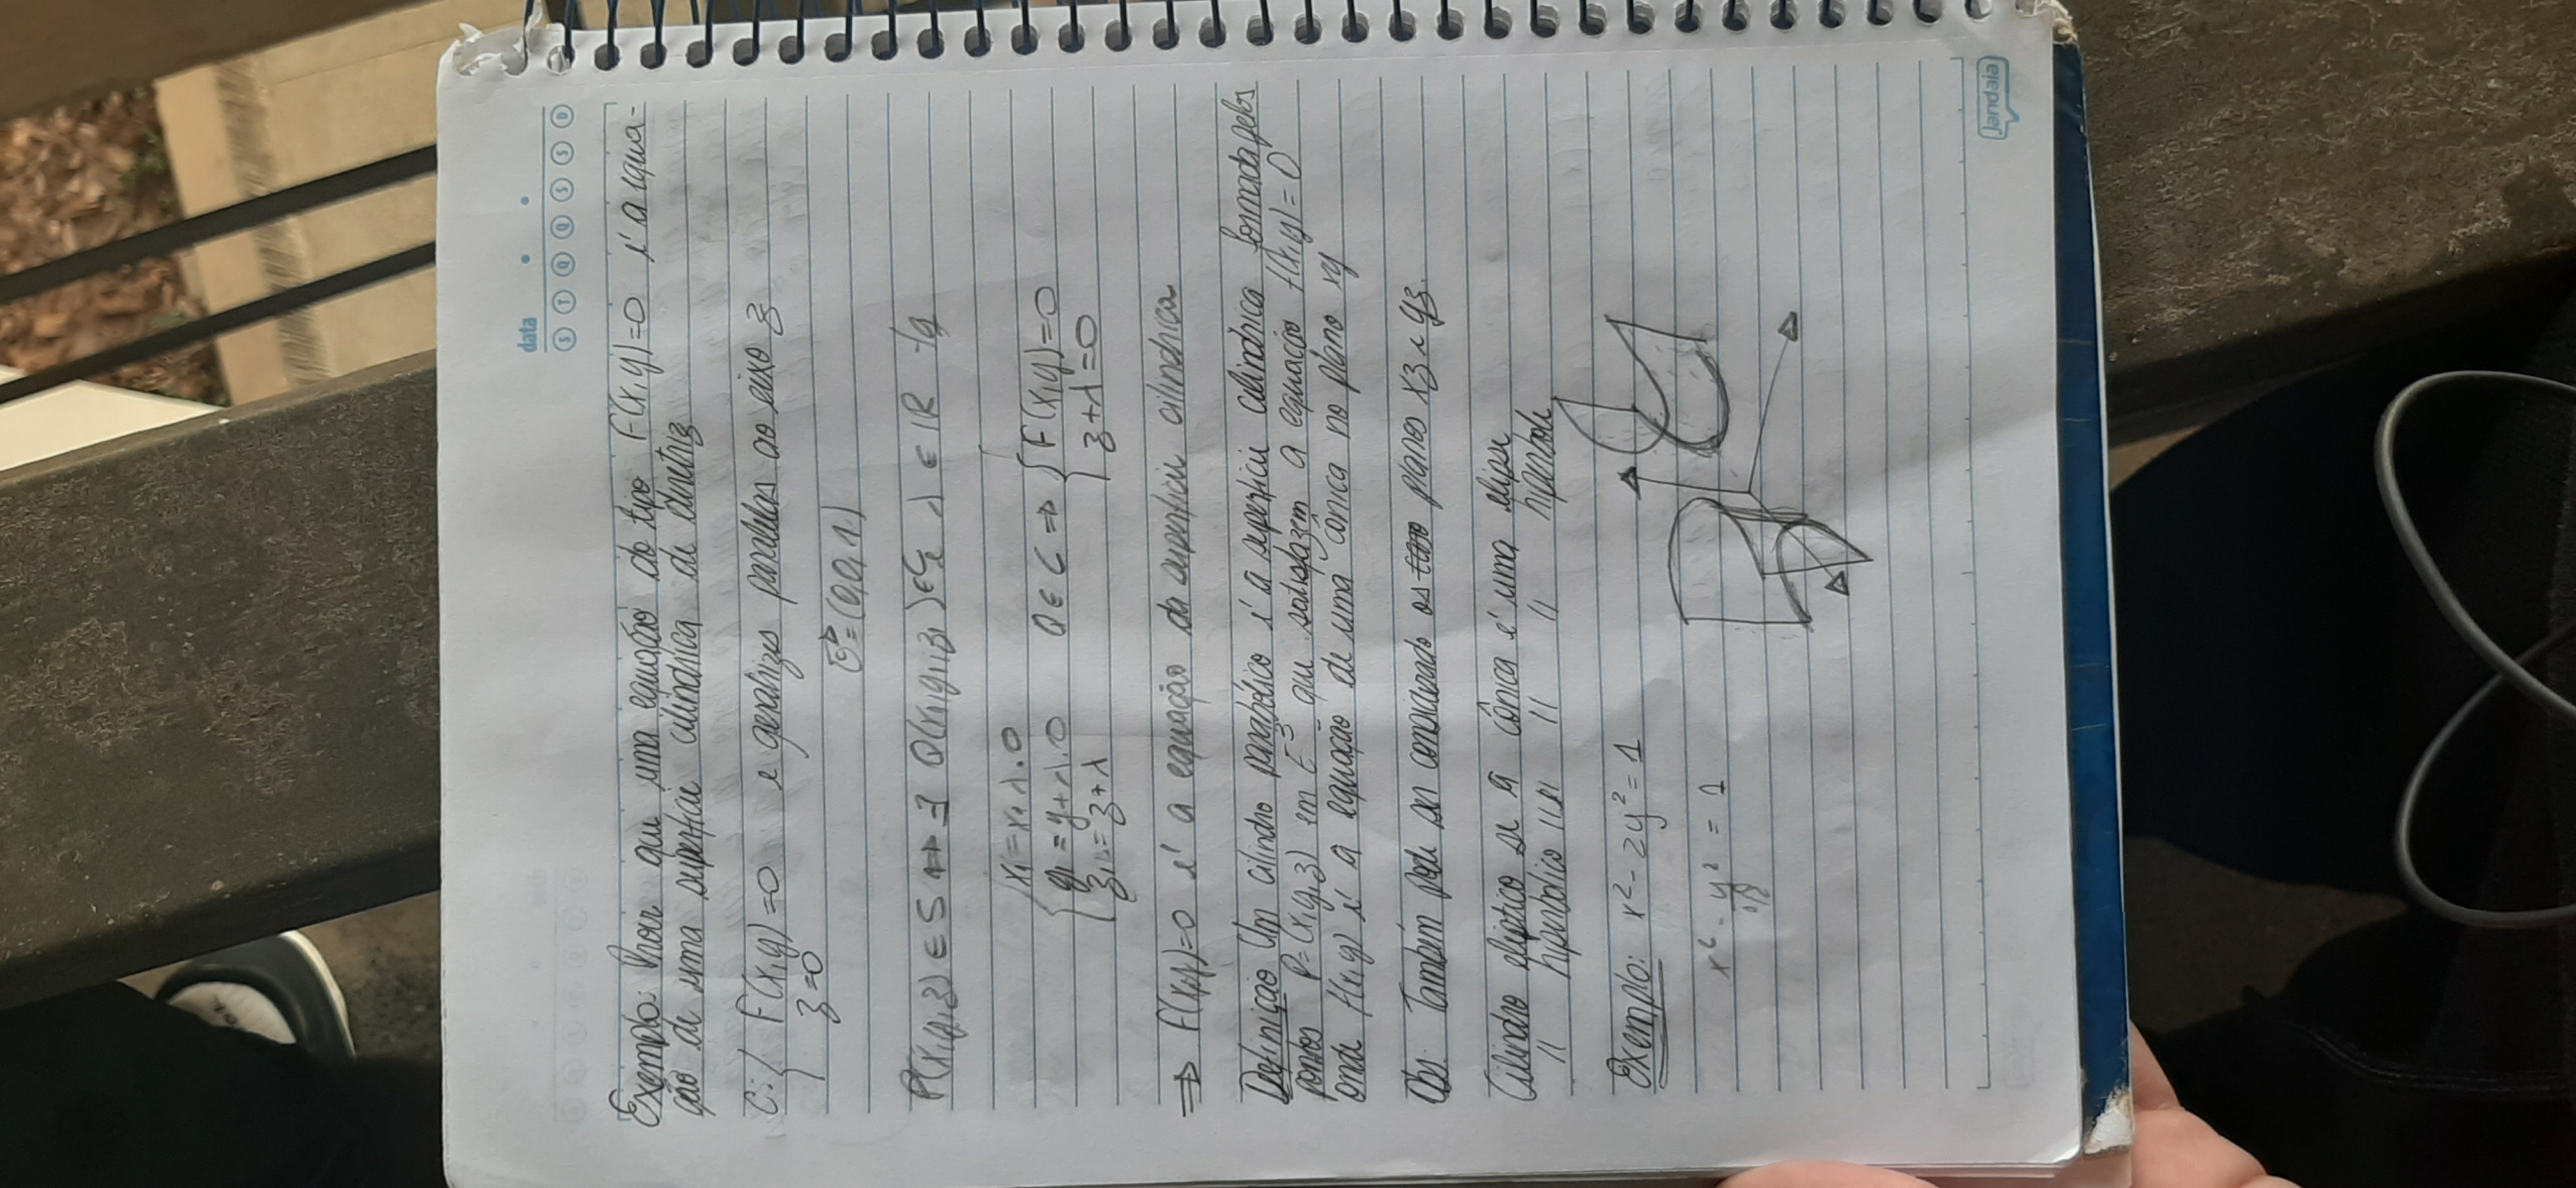 data
S T Q Q S S D
Exemplo: Provar que uma equação do tipo F(x,y)=0 é a equa-
ção de uma superfície cilíndrica de diretriz
C: { F(x,y)=0 e geratrizes paralelas ao eixo z
z=0
v=(0,0,1)
P(x,y,z) ∈ S ⇔ ∃ Q(x₁,y₁,z₁) ∈ C e λ ∈ IR tq
{ x₁=x+λ.0
y₁=y+λ.0 Q ∈ C ⇒ { F(x,y)=0
z₁=z+λ z+λ=0
⇒ F(x,y)=0 é a equação da superfície cilíndrica
Definição Um cilindro parabólico é a superfície cilíndrica formada pelos
pontos P=(x,y,z) em E³ que satisfazem a equação f(x,y)=0
onde f(x,y) é a equação de uma cônica no plano xy
Obs: Também pode ser considerando os planos xz e yz.
Cilindro elíptico se a cônica é uma elipse
" hiperbólico " " " " " hipérbole
Exemplo: x²-2y²=1
x²-y²/½=1
Jandaia